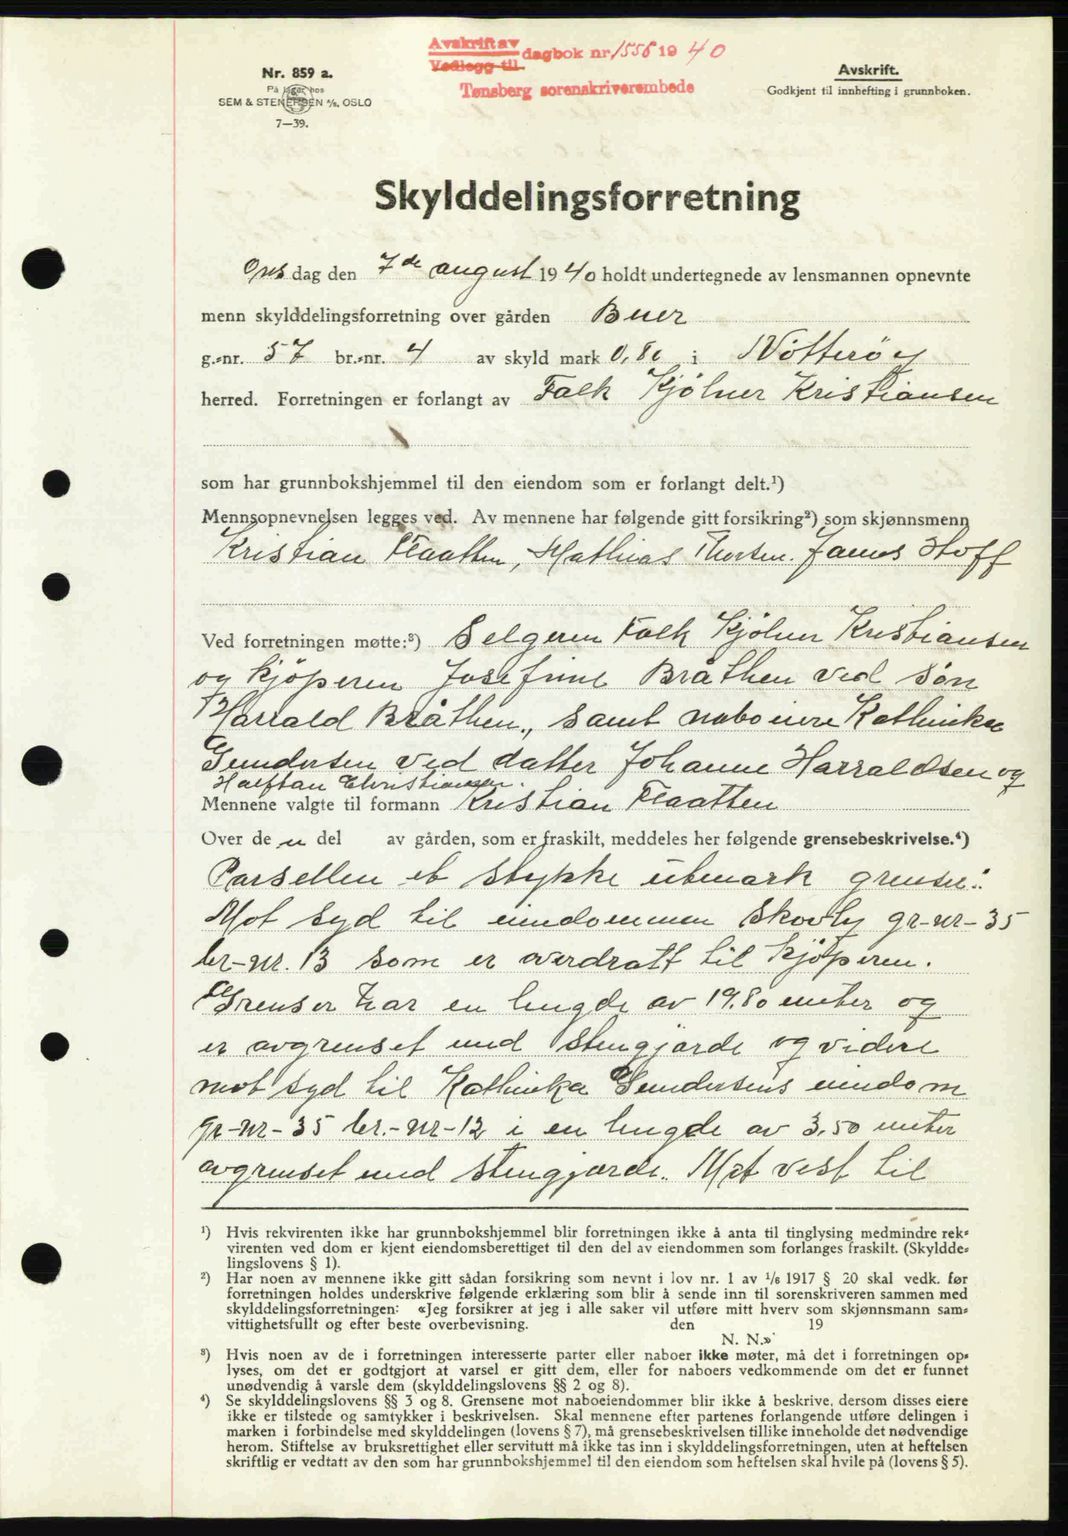 Avskrift av
Vedlegg til
dagbok nr. 1558 19 40
Tønsberg sorenskriverembede
Nr. 859 a.
På lager hos
SEM & STENERSEN A/S, OSLO
7—39.
Avskrift.
Godkjent til innhefting i grunnboken.
Skylddelingsforretning
Ons dag den 7de august 19 40 holdt undertegnede av lensmannen opnevnte
menn skylddelingsforretning over gården Buer
g.-nr. 57 br.-nr. 4 av skyld mark 0,80 i Nøtterøy
herred. Forretningen er forlangt av Falk Kjølner Kristiansen
som har grunnbokshjemmel til den eiendom som er forlangt delt.¹)
Mennsopnevnelsen legges ved. Av mennene har følgende gitt forsikring²) som skjønnsmenn
Kristian Flaatten, Mathias Thorsen. James Hoff
Ved forretningen møtte:³) Selgeren Falk Kjølner Kristiansen
og kjøperen Josefine Bråthen ved søn
Harrald Bråthen., samt naboeiere Kathinka
Gundersen ved datter Johanne Harraldsen og
Halftan Christiansen.
Mennene valgte til formann Kristian Flaatten
Over de n del av gården, som er fraskilt, meddeles her følgende grensebeskrivelse.⁴)
Parsellen et stykke utmark grenser:
Mot syd til eiendommen Skovly gr-nr-35
br-nr. 13 som er overdratt til kjøperen.
Grensen har en lengde av 19.80 meter og
er avgrenset med stengjærde og videre
mot syd til Kathinka Gundersens eiendom
gr-nr-35 br.-nr-12 i en lengde av 3,50 meter
avgrenset med stengjærde.. Mot vest til
¹) Hvis rekvirenten ikke har grunnbokshjemmel blir forretningen ikke å anta til tinglysing medmindre rek-
virenten ved dom er kjent eiendomsberettiget til den del av eiendommen som forlanges fraskilt. (Skyldde-
lingslovens § 1).
²) Har noen av mennene ikke gitt sådan forsikring som nevnt i lov nr. 1 av 1/6 1917 § 20 skal vedk. før
forretningen holdes underskrive følgende erklæring som blir å sende inn til sorenskriveren sammen med
skylddelingsforretningen: «Jeg forsikrer at jeg i alle saker vil utføre mitt hverv som skjønnsmann sam-
vittighetsfullt og efter beste overbevisning. den 19
N. N.»
³) Hvis noen av de i forretningen interesserte parter eller naboer ikke møter, må det i forretningen op-
lyses, om det er godtgjort at varsel er gitt dem, eller for naboers vedkommende om det er funnet
unødvendig å varsle dem (skylddelingslovens §§ 2 og 8).
⁴) Se skylddelingslovens §§ 3 og 8. Grensene mot naboeiendommer blir ikke å beskrive, dersom disses eiere
ikke er tilstede og samtykker i beskrivelsen. Skal mennene efter partenes forlangende utføre delingen i
marken i forbindelse med skylddelingen (lovens § 7), må grensebeskrivelsen tillike inneholde det nødvendige
herom. Stiftelse av bruksrettighet eller servitutt må ikke tas inn i skylddelingsforretningen, uten at heftelsen
skriftlig er vedtatt av den som har grunnbokshjemmel til den eiendom som heftelsen skal hvile på (lovens § 5).